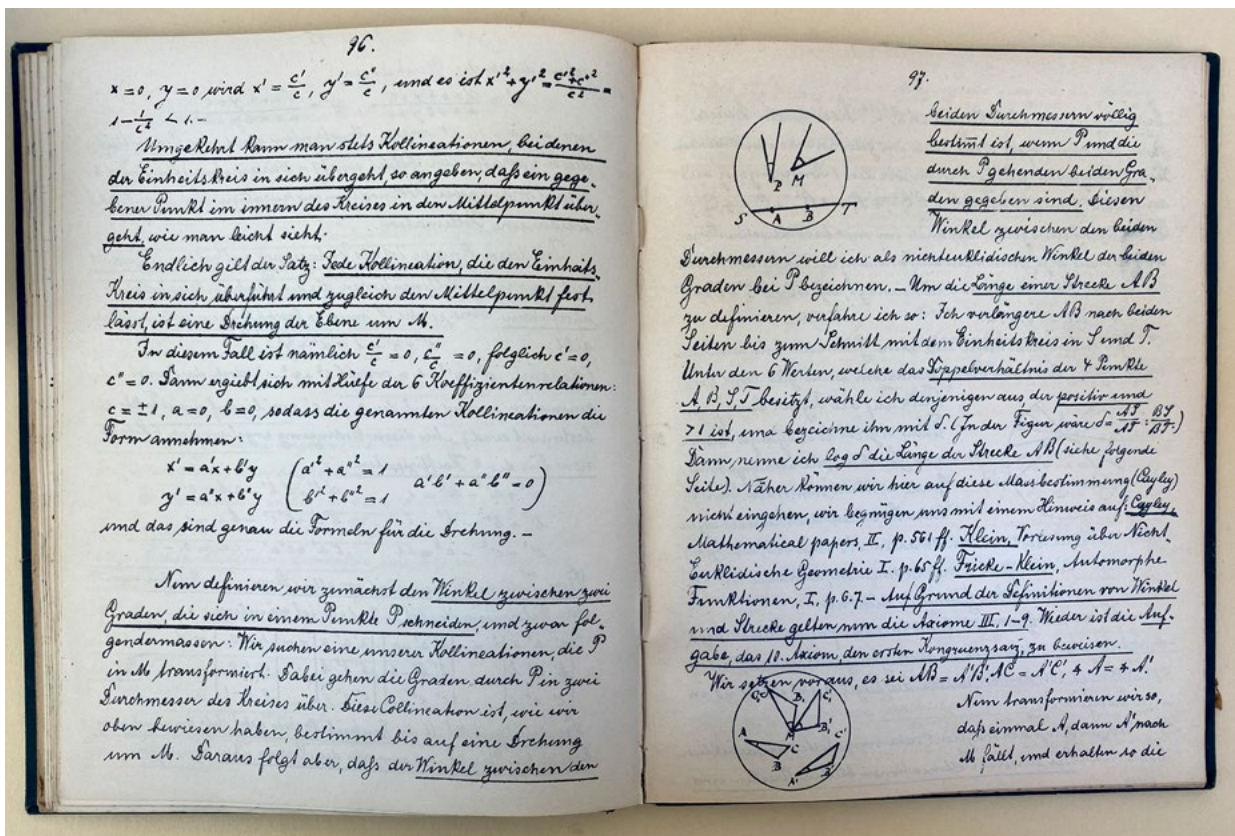 96.
x=0, y=0 wird x' = c'/c, y' = c''/c, und es ist x'²+y'² = (c'²+c''²)/c² =
1 - 1/c² < 1. -
Umgekehrt kann man stets Kollineationen, bei denen
der Einheitskreis in sich übergeht, so angeben, daß ein gege-
bener Punkt im innern des Kreises in den Mittelpunkt über-
geht, wie man leicht sieht.
Endlich gilt der Satz: Jede Kollineation, die den Einheits-
Kreis in sich überführt und zugleich den Mittelpunkt fest
lässt, ist eine Drehung der Ebene um M.
In diesem Fall ist nämlich c'/c = 0, c''/c = 0, folglich c'=0,
c''=0. Dann ergiebt sich mit Hülfe der 6 Koeffizientenrelationen:
c = ±1, a=0, b=0, sodass die genannten Kollineationen die
Form annehmen:
x' = a'x+b'y (a'²+a''²=1
a'b'+a''b''=0)
y' = a''x+b''y b'²+b''²=1
und das sind genau die Formeln für die Drehung. -
Nun definieren wir zunächst den Winkel zwischen zwei
Graden, die sich in einem Punkte P schneiden, und zwar fol-
gendermassen: Wir suchen eine unserer Kollineationen, die P
in M transformiert. Dabei gehen die Graden durch P in zwei
Durchmesser des Kreises über. Diese Collineation ist, wie wir
oben bewiesen haben, bestimmt bis auf eine Drehung
um M. Daraus folgt aber, daß der Winkel zwischen den
97.
P M
S A B T
beiden Durchmessern völlig
bestim̄t ist, wenn P und die
durch P gehenden beiden Gra-
den gegeben sind. Diesen
Winkel zwischen den beiden
Durchmessern will ich als nichteuklidischen Winkel der beiden
Graden bei P bezeichnen. - Um die Länge einer Strecke AB
zu definieren, verfahre ich so: Ich verlängere AB nach beiden
Seiten bis zum Schnitt mit dem Einheitskreis in S und T.
Unter den 6 Werten, welche das Doppelverhältnis der 4 Punkte
A, B, S, T besitzt, wähle ich denjenigen aus, der positiv und
>1 ist, und bezeichne ihn mit δ. (In der Figur wäre δ= AS/AT : BS/BT.)
Dann nenne ich log δ die Länge der Strecke AB (siehe folgende
Seite). Näher können wir hier auf diese Massbestimmung (Cayley)
nicht eingehen, wir begnügen uns mit einem Hinweis auf: Cayley,
Mathematical papers, II, p. 561 ff. Klein, Vorlesung über Nicht-
Euklidische Geometrie I. p. 65 ff. Fricke-Klein, Automorphe
Funktionen, I, p. 6.7. - Auf Grund der Definitionen von Winkel
und Strecke gelten nun die Axiome III, 1-9. Wieder ist die Auf-
gabe, das 10. Axiom, den ersten Kongruenzsatz, zu beweisen.
Wir setzen voraus, es sei AB = A'B', AC = A'C', ∢ A = ∢ A'.
C₁ B₁ C₁'
M B₁'
A C C'
B A' B'
Nun transformieren wir so,
daß einmal A, dann A' nach
M fällt, und erhalten so die